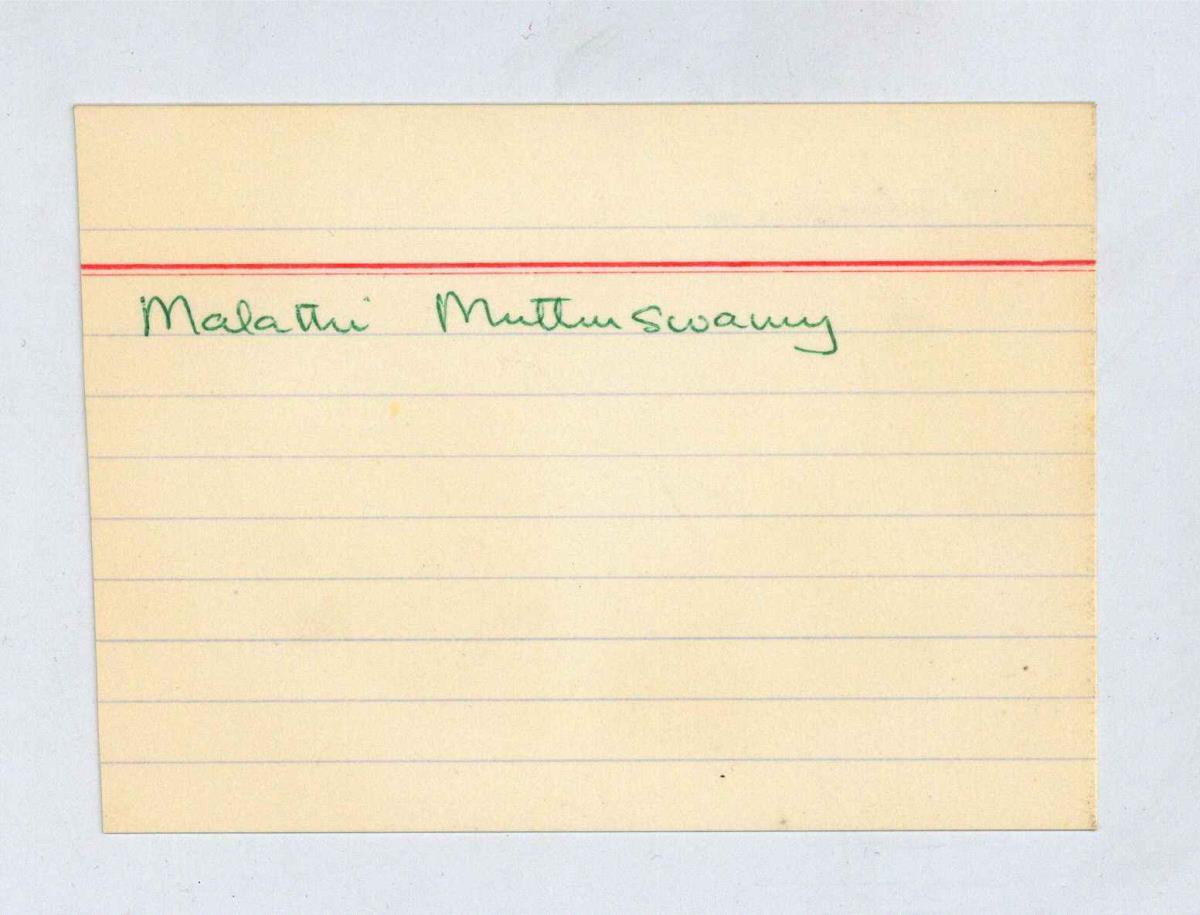 Malathi Muthuswamy